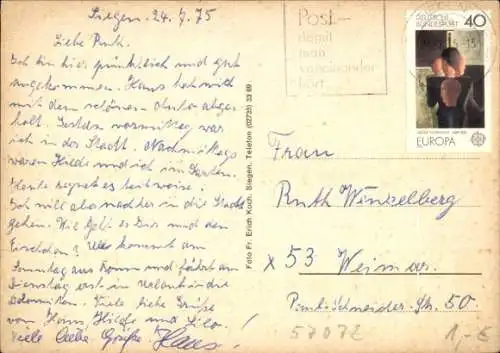 Siegen. 24.7.75
Liebe Ruth.
Ich bin hier pünktlich und gut
angekommen. Hans hat mich
mit dem schönen Auto abge-
holt. Gestern vormittag war
ich in der Stadt. Nachmittags
waren Hilde und ich im Garten.
Heute regnet es teilweise.
Ich will aber nachher in die Stadt
gehen. Wie geht es Dir und den
? Ute kommt am
Sonntag aus und fährt am
Dienstag erst in Urlaub in die
Dolomiten. Viele liebe Grüße
von Hans, Hilde und Lilo.
Viele liebe Grüße Hans!
Foto Fr. Erich Koch, Siegen, Telefon (02735) 33 69
Post-
damit
man
voneinander
hört
DEUTSCHE
BUNDESPOST
40
EUROPA
Frau
Ruth Winzelberg
x 53 Weimar.
Paul-Schneider-Str. 50.
57072
1,- €